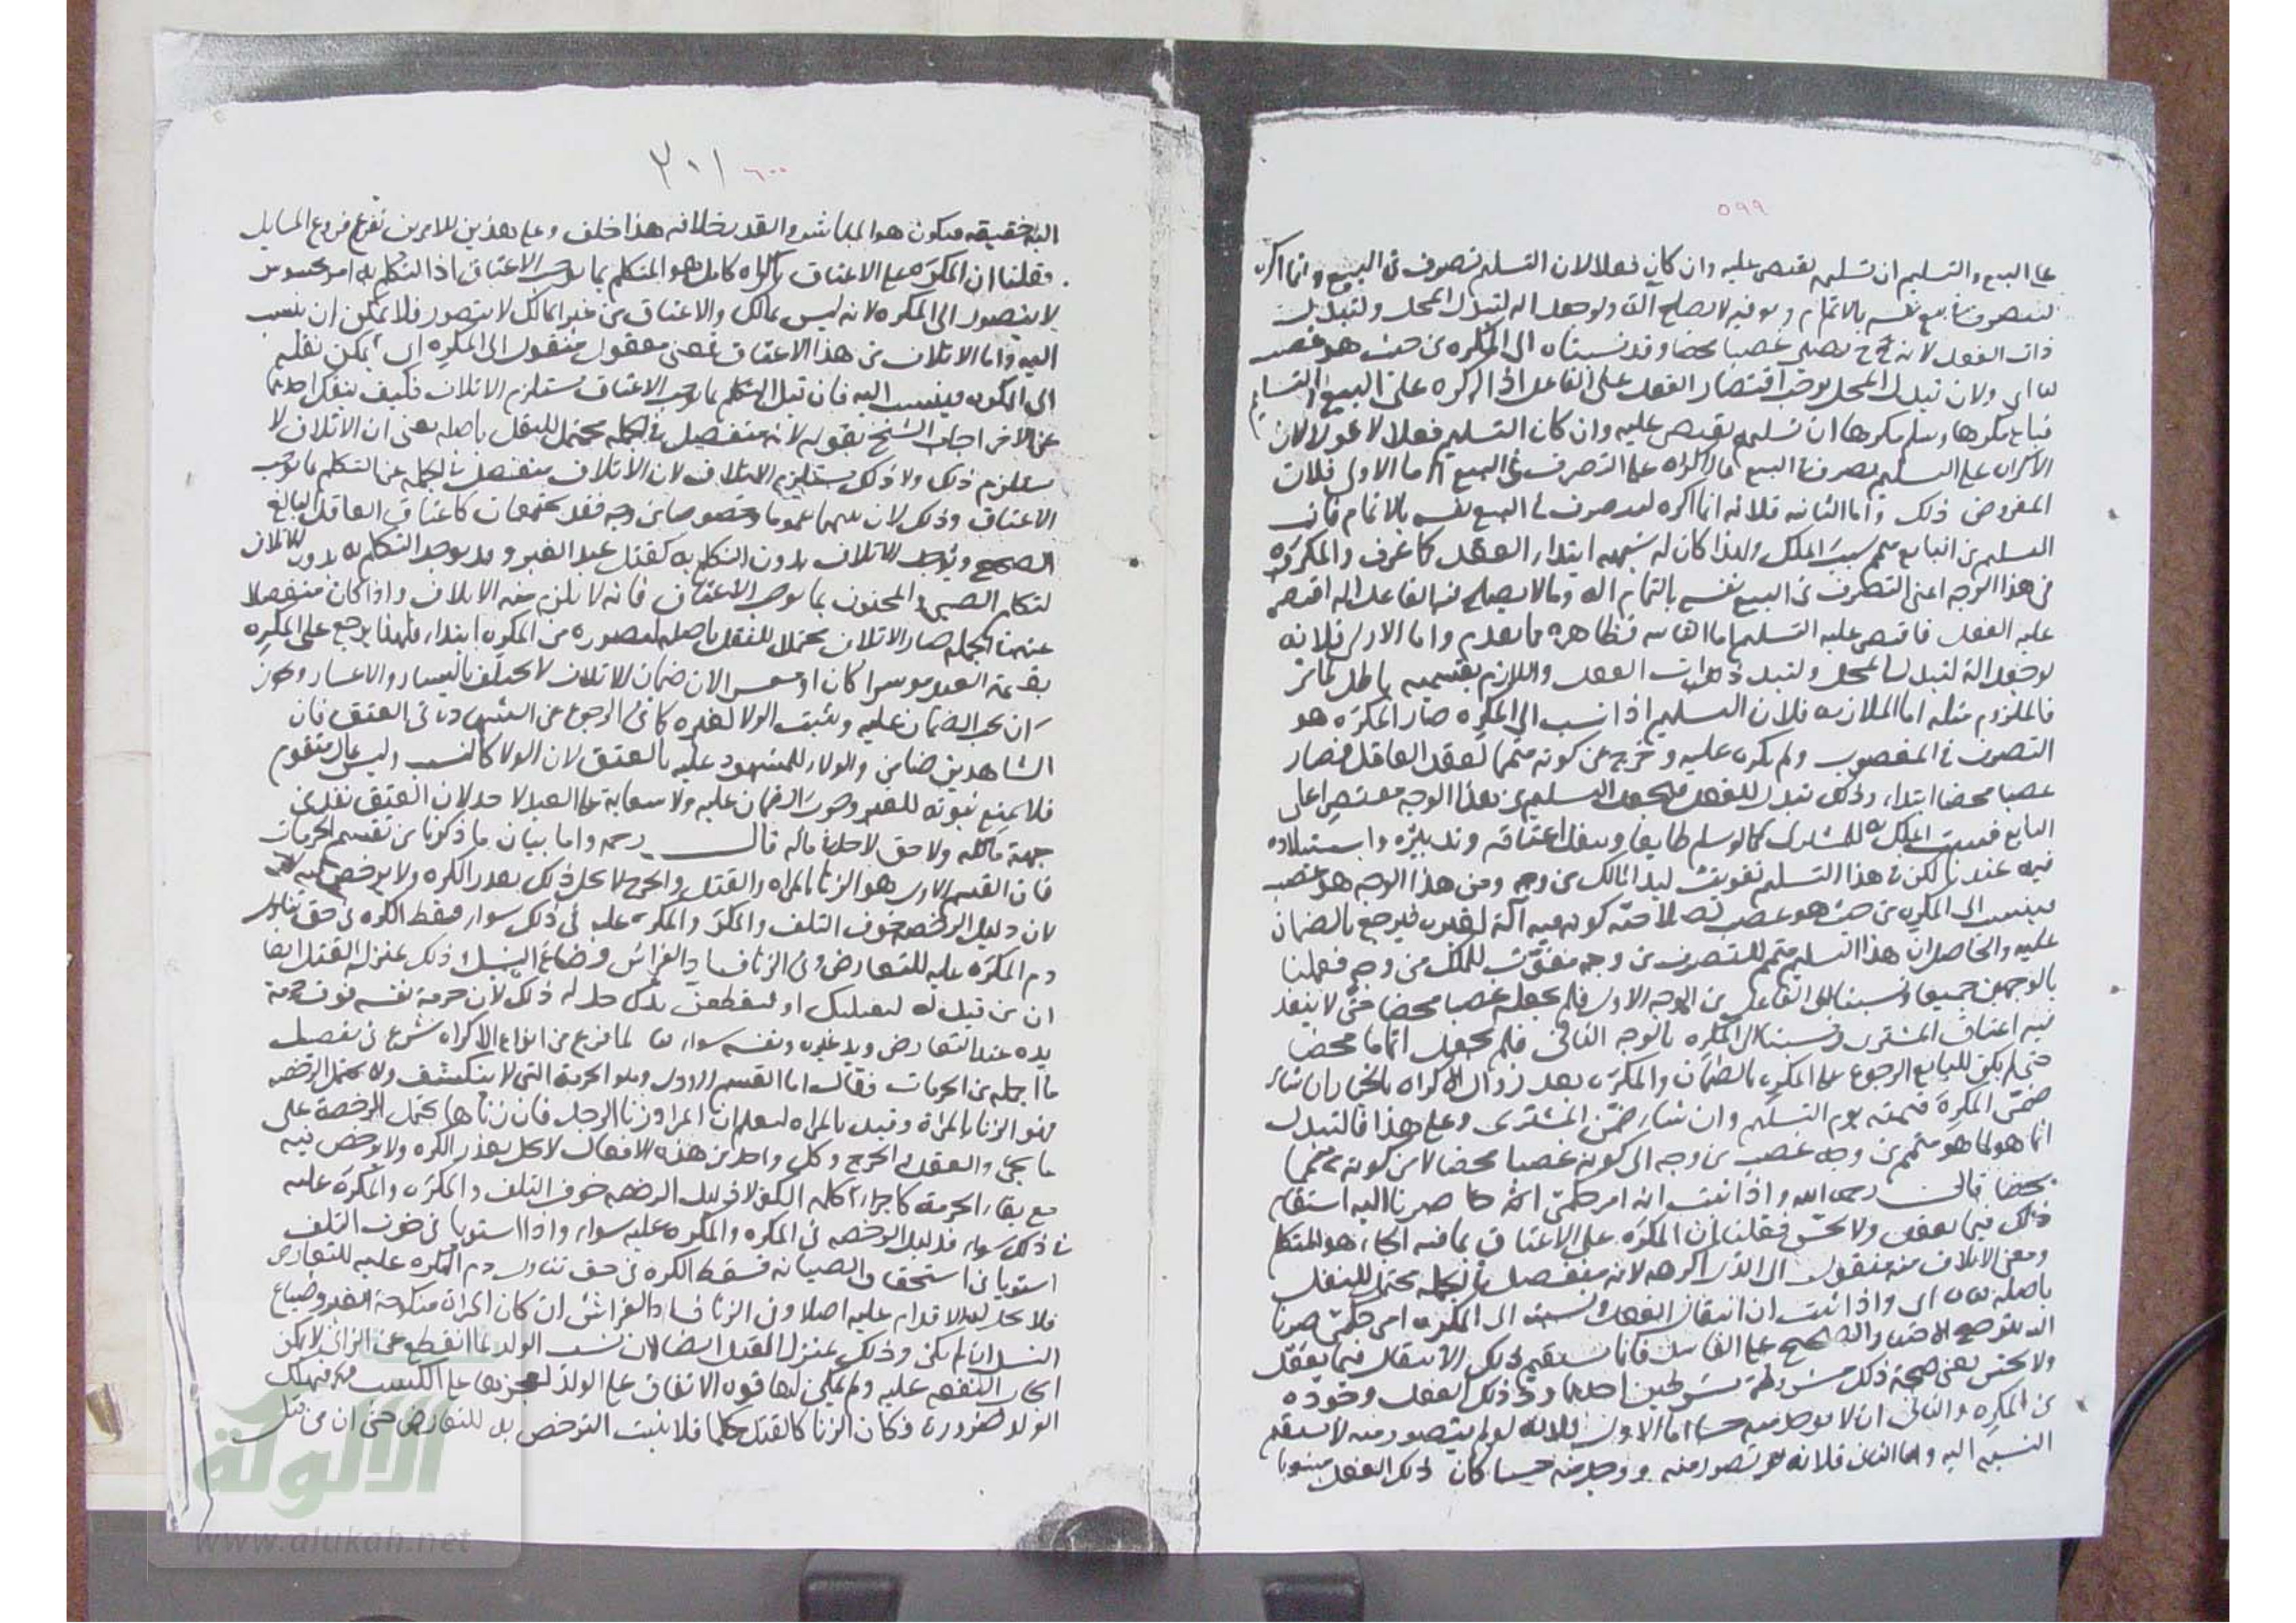 ٥٩٩
على البيع والتسليم ان تسليمه يقتصر عليه وان كان فعلا لان التسليم تصرف في البيع وانما اكره
ليتصرف في بيع نفسه بالاتمام وهو فيه لا يصلح آلة ولو جعل آلة لتبدل المحل ولتبدل
ذات الفعل لانه ح يصير غصبا محضا وقد نسبناه الى المكره من حيث هو غصب
اي ولان تبدل المحل يوجب اقتصار الفعل على الفاعل اذا اكره على البيع والتسليم
فباع مكرها وسلم مكرها ان تسليمه يقتصر عليه وان كان التسليم فعلا لا قولا لان
الاكراه على التسليم تصرف في البيع فالاكراه على التصرف في البيع اما الاولى فلان
المفروض ذلك واما الثانية فلانه انما اكره ليتصرف في البيع نفسه بالاتمام فان
التسليم من البايع متمم سبب الملك ولهذا كان له شبهة ابتداء العقد كما عرف والمكره
في هذا الوجه اعنى التصرف في البيع نفسه بالاتمام آلة وما لا يصلح فيه الفاعل آلة اقتصر
عليه الفعل فاقتصر عليه التسليم اما الثانية فظاهرة مما تقدم واما الاولى فلانه
لو جعل آلة لتبدل المحل ولتبدل ذات الفعل واللازم بقسميه باطل
فالملزوم مثله اما الملازمة فلان التسليم اذا نسب الى المكره صار المكره هو
التصرف في المغصوب ولم يكره عليه وخرج عن كونه متمما لعقد العاقل فصار
غصبا محضا ابتداء وذلك تبدل للفعل فيجعل التسليم من هذا الوجه مقتصرا على
البايع فيثبت الملك للمشترى كما لو سلم طايعا وينفذ اعتاقه وتدبيره واستيلاده
فيه عندنا لكن في هذا التسليم تفويت ليد المالك من وجه ومن هذا الوجه هو غصب
فينسب الى المكره من حيث هو غصب لصلاحية كونه فيه آلة لغيره فيرجع بالضمان
عليه والحاصل ان هذا التسليم متمم للتصرف من وجه مفوت للملك من وجه فعملنا
بالوجهين جميعا ونسبنا الى الفاعل من الوجه الاول فلم يجعل غصبا محضا حتى لا ينفذ
فيه اعتاق المشترى ونسبنا الى المكره بالوجه الثاني فلم يجعل اتماما محضا
حتى لم يكن للبايع الرجوع على المكره بالضمان والمكره بعد زوال الاكراه بالخيار ان شاء
ضمن المكره قيمته يوم التسليم وان شاء ضمن المشترى وعلى هذا فالتبدل
انما هو لما هو متمم من وجه غصب من وجه الى كونه غصبا محضا لا من كونه متمما
محضا قال رحمه الله واذا ثبت انه امر حكمى صرنا اليه استقام
ذلك فيما يعقل ولا يحس فقلنا ان المكره على الاعتاق بما فيه الجاء هو المتكلم
ومعنى الاتلاف منه منقول الى الذي اكرهه لانه منفصل في الجملة محتمل للنقل
باصله اي واذا ثبت ان انتقال الفعل ونسبته الى المكره امر حكمى صرنا
اليه على الفاسد فانما يستقيم ذلك الانتقال فيما يعقل
ولا يحس يعنى صحة ذلك مشروطة بشرطين احدهما ذلك الفعل وجوده
من المكره والثاني ان لا يوجد منه حسا اما الاول فلانه لو لم يتصور منه لا يستقيم
النسبة اليه واما الثاني فلانه لو تصور منه ووجد منه حسا كان ذلك الفعل منسوبا
٦٠٠ ٣٠١
اليه حقيقة فيكون هو المباشر والتقدير خلافه هذا خلف وعلى هذين الامرين تفرع فروع المسايل
فقلنا ان المكره على الاعتاق باكراه كامل هو المتكلم بما يوجب الاعتاق اذ التكلم به امر محسوس
لا يتصور الى المكره لانه ليس بمالك والاعتاق من غير المالك لا يتصور فلا يمكن ان ينسب
اليه واما الاتلاف في هذا الاعتاق فمعنى معقول منقول الى المكره اي يمكن نقله
الى المكره فينسب اليه فان قيل التكلم بما يوجب الاعتاق مستلزم الاتلاف فكيف ينفك احدهما
عن الاخر اجاب الشيخ بقوله لانه منفصل في الجملة محتمل للنقل باصله يعنى ان الاتلاف لا
يستلزم ذلك ولا ذلك يستلزم الاتلاف لان الاتلاف منفصل في الجملة عن التكلم بما يوجب
الاعتاق وذلك لان بينهما عموما وخصوصا من وجه فقد يجتمعان كاعتاق العاقل البالغ
الصحيح ويوجد الاتلاف بدون التكلم به كقتل عبد الغير وقد يوجد التكلم به بدون الاتلاف
لتكلم الصبي والمجنون بما يوجب الاعتاق فانه لا يلزم منه الاتلاف واذا كان منفصلا
عنه في الجملة صار الاتلاف محتملا للنقل باصله لتصوره من المكره ابتداء فلهذا يرجع على المكره
بقيمة العبد موسرا كان او معسرا لان ضمان الاتلاف لا يختلف باليسار والاعسار ويجوز
ان يجب الضمان عليه ويثبت الولا لغيره كما في الرجوع عن الشهادة في العتق فان
الشاهدين ضامن والولاء للمشهود عليه بالعتق لان الولا كالنسب وليس بمال متقوم
فلا يمنع ثبوته للغير وجوب الضمان عليه ولا سعاية على العبد لاحد لان العتق نفذ من
جهة مالكه ولا حق لاحد في ماله قال رحمه واما بيان ما ذكرنا من تقسيم الحرمات
فان القسم الاول هو الزنا بالمراة والقتل والجرح لا يحل ذلك بعذر الكره ولا يرخص فيه
لان دليل الرخصة خوف التلف والمكره والمكره عليه في ذلك سواء فسقط الكره في حق تناول
دم المكره عليه للتعارض وفي الزنا فساد الفراش وضياع النسل وذلك بمنزلة القتل ايضا
ان من قيل له ليقتلنك او ليقطعن يدك حل له ذلك لان حرمة نفسه فوق حرمة
يده عند التعارض ويد غيره ونفسه سواء لما فرغ من انواع الاكراه شرع في تفصيل
ما اجمله من الحرمات فقال اما القسم الاول وهو الحرمة التي لا تنكشف ولا تحتمل الرخصة
فهو الزنا بالمراة وقيد بالمراة ليعلم ان المراد زنا الرجل فان زناها يحتمل الرخصة على
ما يجئ والقتل والجرح وكل واحد من هذه الافعال لا يحل بعذر الكره ولا يرخص فيه
مع بقاء الحرمة كاجراء كلمة الكفر لان دليل الرخصة خوف التلف والمكره والمكره عليه
في ذلك سواء فدليل الرخصة في المكره والمكره عليه سواء واذا استويا في خوف التلف
استويا في استحقاق الصيانة فسقط الكره في حق تناول دم المكره عليه للتعارض
فلا يحل له الاقدام عليه اصلا وفي الزنا فساد الفراش ان كان المراة منكوحة الغير وضياع
النسل ان لم يكن وذلك بمنزلة القتل ايضا لان نسب الولد لما انقطع عن الزاني لا يمكن
ايجاب النفقة عليه ولم يكن لها قوة الانفاق على الولد لعجزها على الكسب فيهلك
الولد ضرورة فكان الزنا كالقتل حكما فلا يثبت الترخص به للتعارض حتى ان من قيل
الألوكة
www.alukah.net